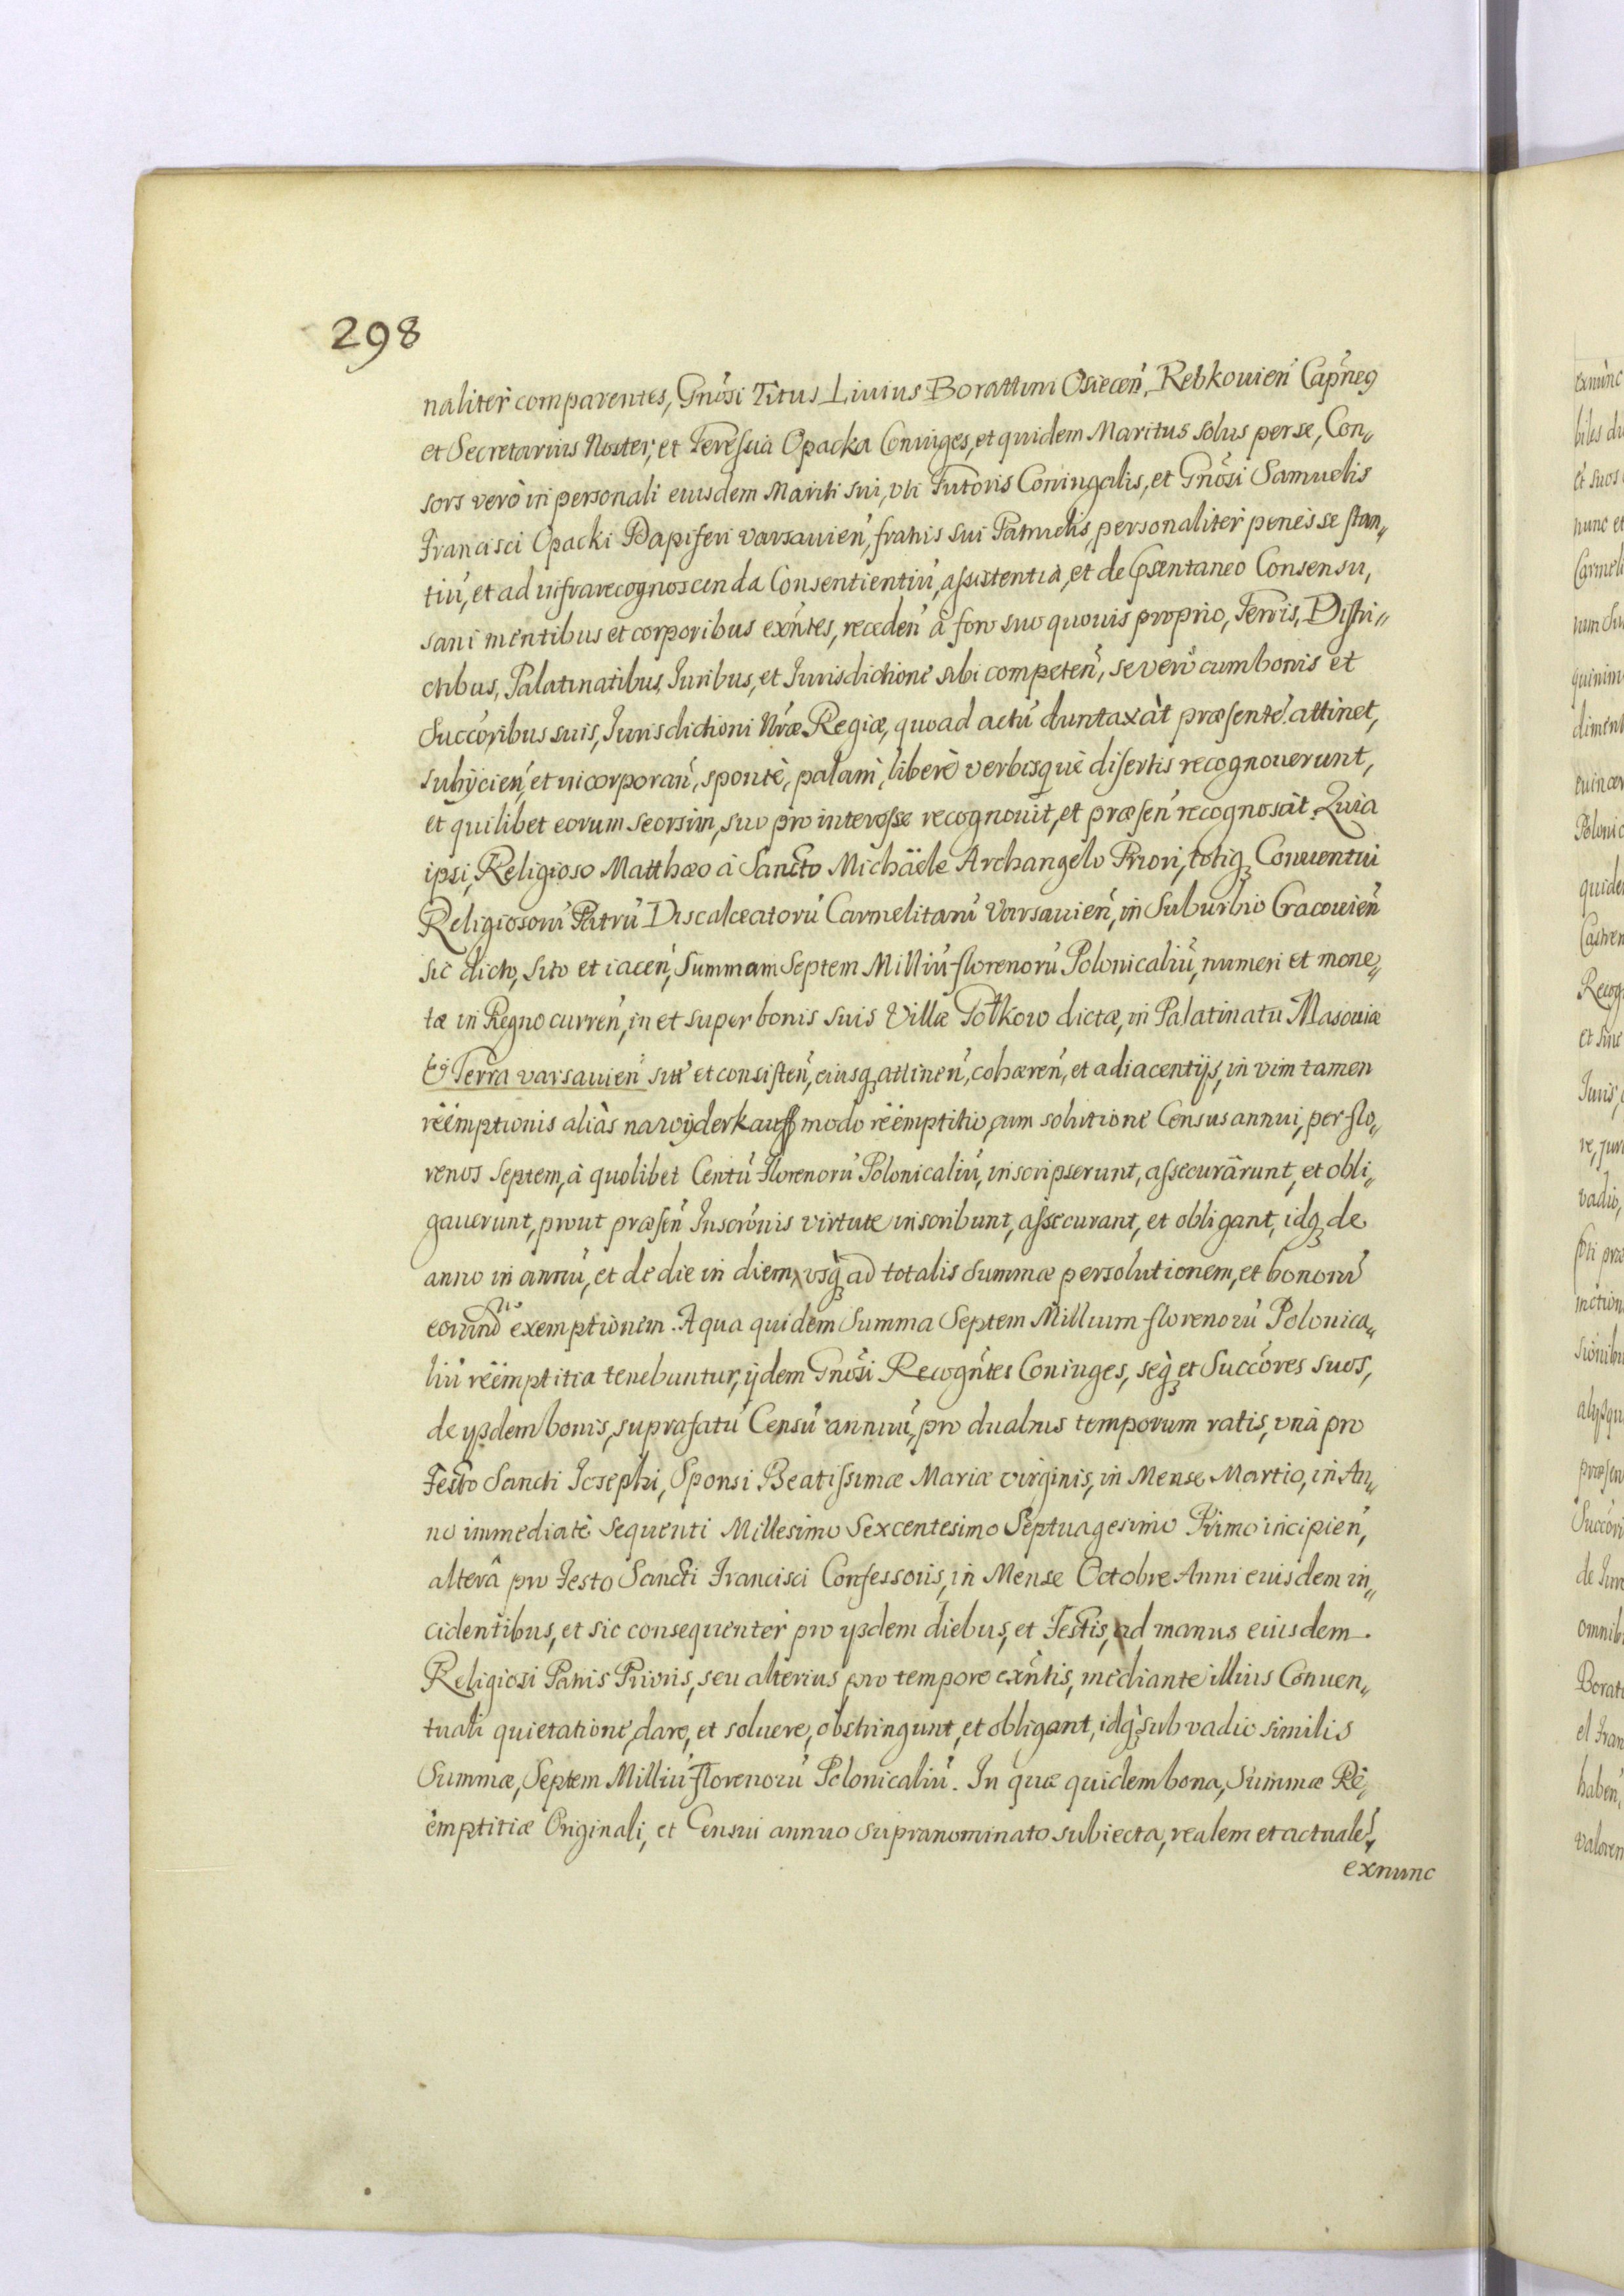 298
naliter comparentes, Gnósi Titus Liuius Borattini Osiecen̄, Rebkouien̄ Capn̄eg
et Secretarius Noster, et Teressia Opacka Coniuges, et quidem Maritus solus per se, Con„
sors verò in personali eiusdem Mariti sui, vti Tutoris Coniugalis, et Gnósi Samuelis
Francisci Opacki Dapiferi varsauien̄, fratris sui Patruelis, personaliter penes se stan„
tiū, et ad infrarecognoscenda Consentientiū, assistentia, et de Cpsentaneo Consensu,
sani mentibus et corporibus exn̄tes, receden̄ à foro suo quouis proprio, Terris, Distri„
ctibus, Palatinatibus, Iuribus, et Iurisdictione sibi competen̄, se verò cum bonis et
Succoribus suis, Iurisdictioni Nr̄æ Regiæ, quoad actū duntaxàt præsentē attinet,
subijcien̄, et incorporan̄, spontè, palam, liberè verbisque disertis recognouerunt,
et quilibet eorum seorsim, suo pro interesse recognouit, et præsen̄ recognoscit. Quia
ipsi, Religioso Matthæo à Sancto Michäele Archangelo Priori, totiq3 Conuentui
Religiosorū Patrū Discalceatorū Carmelitarū Varsauien̄, in Suburbio Cracouien̄
sic dicto, sito et iacen̄, Summam Septem Milliū florenorū Polonicaliū, numeri et mone„
tæ in Regno curren̄, in et super bonis suis Villæ Potkow dictæ, in Palatinatu Masouiæ
Et Terra varsauien̄ sit̄ et consisten̄, eiusq3 attinen̄, cohæren̄, et adiacentijs, in vim tamen
rëemptionis aliàs na wyderkauff modo rëemptitio, cum solutione Census annui, per flo„
renos Septem, à quolibet Centū Florenorū Polonicaliū, inscripserunt, assecurârunt, et obli„
gauerunt, prout præsen̄ Inscrōnis virtute inscribunt, assecurant, et obligant, idq3 de
anno in annū, et de die in diem, vsq3 ad totalis Summæ persolutionem, et bonorū
eorund exemptionem. A qua quidem Summa Septem Millium florenorū Polonica„
liū rëemptitia tenebuntur, ijdem Gnósi Recogn̄tes Coniuges, seq3 et Succōres suos,
de ijsdem bonis, suprafatū Censū annuū, pro duabus temporum ratis, vnâ pro
Festo Sancti Iosephi, Sponsi Beatissimæ Mariæ virginis, in Mense Martio, in An„
no immediatè sequenti Millesimo Sexcentesimo Septuagesimo Primo incipien̄,
alterâ pro Festo Sancti Francisci Confessoris, in Mense Octobre Anni eiusdem in„
cidentibus, et sic consequenter pro ijsdem diebus, et Festis, ad manus eiusdem.
Religiosi Patris Prioris, seu alterius pro tempore exn̄tis, mediante illius Conuen„
tuali quietatione, dare, et soluere, obstringunt, et obligant, idq3 sub vadio similis
Summæ, Septem Milliū Florenorū Polonicaliū. In quæ quidem bona, Summæ Rë„
emptitiæ Originali, et Censui annuo supranominato subiecta, realem et actualē,
exnunc